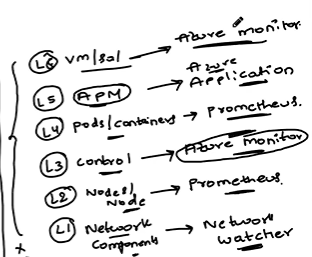 L6 VM/Sol → Azure monitor.
L5 APM → Azure Application
L4 Pods/containers → Prometheus.
L3 control → Azure monitor
L2 Nodes/Node → Prometheus.
L1 Network Components → Network Watcher